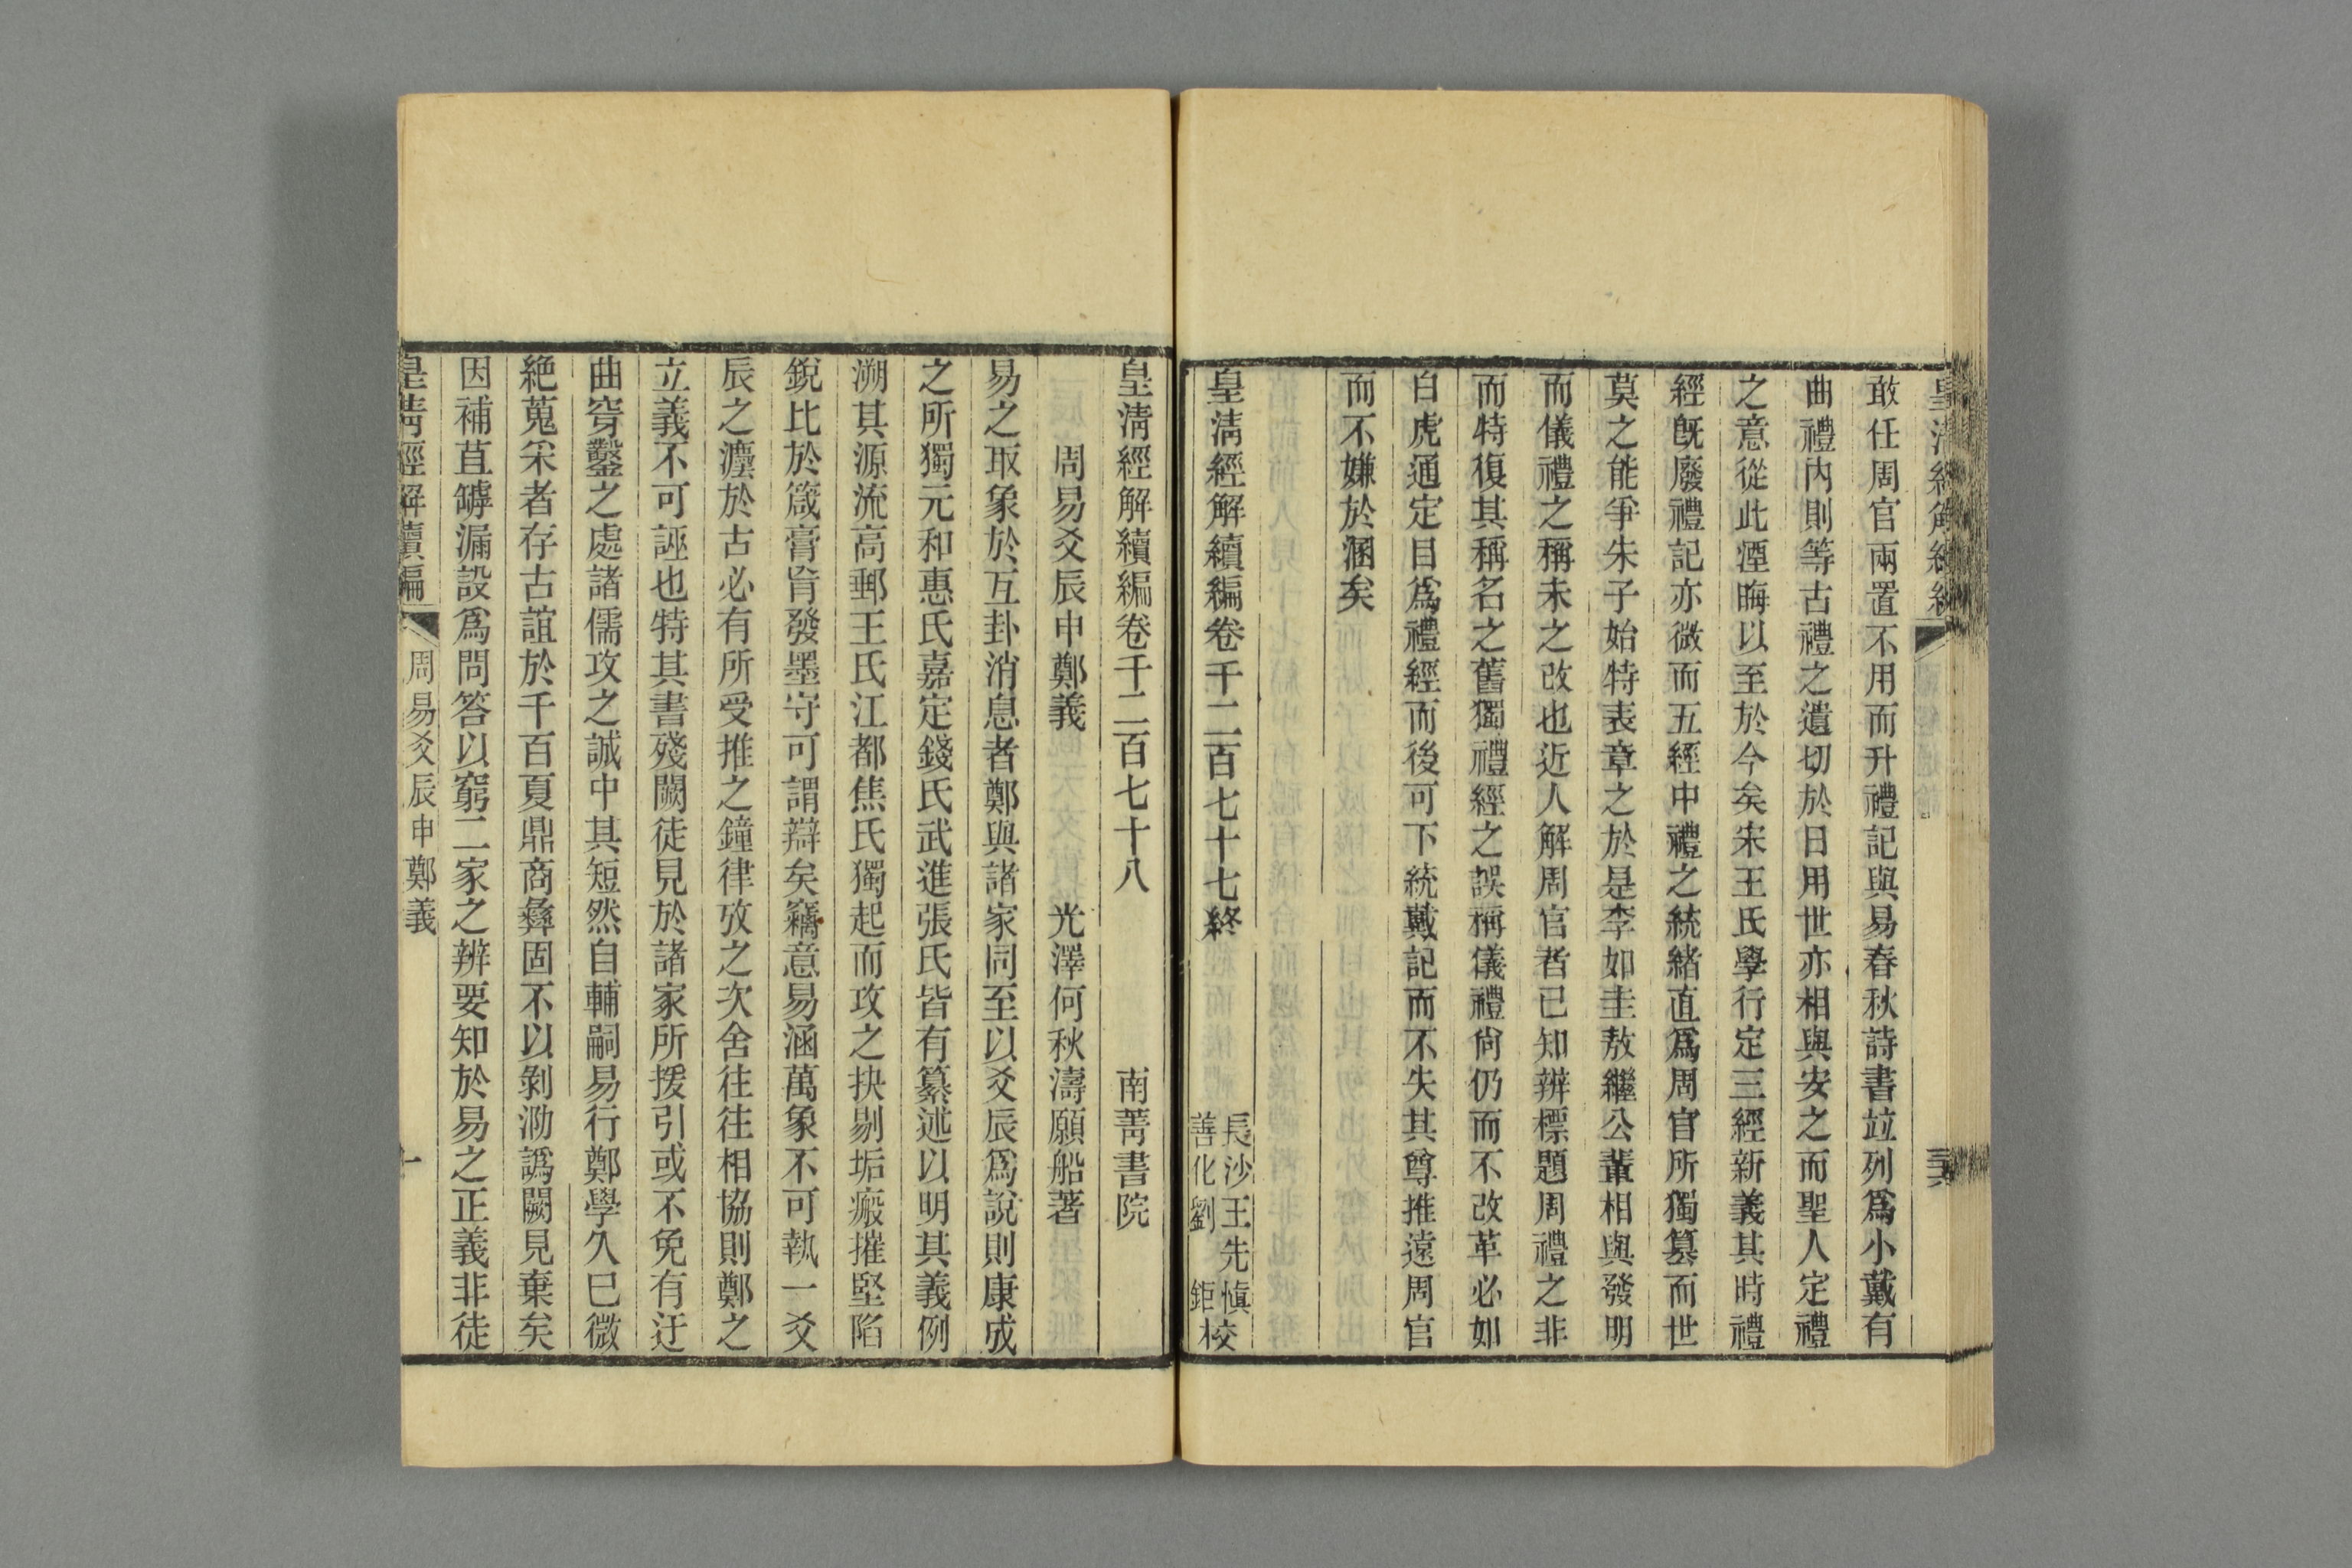 敢任周官兩置不用而升禮記與易春秋詩書竝列爲小戴有
曲禮內則等古禮之遺切於日用世亦相與安之而聖人定禮
之意從此湮晦以至於今矣宋王氏學行定三經新義其時禮
經旣廢禮記亦微而五經中禮之統緒直爲周官所獨簒而世
莫之能爭朱子始特表章之於是李如圭敖繼公輩相與發明
而儀禮之稱未之改也近人解周官者已知辨標題周禮之非
而特復其稱名之舊獨禮經之誤稱儀禮尙仍而不改革必如
白虎通定目爲禮經而後可下統戴記而不失其尊推遠周官
而不嫌於溷矣
皇淸經解續編卷千二百七十七終
長沙王先愼校
善化劉　鉅校
皇淸經解續編卷千二百七十八　南菁書院
周易爻辰申鄭義　光澤何秋濤願船著
易之取象於互卦消息者鄭與諸家同至以爻辰爲說則康成
之所獨元和惠氏嘉定錢氏武進張氏皆有纂述以明其義例
溯其源流高郵王氏江都焦氏獨起而攻之抉剔垢瘢摧堅陷
銳比於箴膏肓發墨守可謂辯矣竊意易涵萬象不可執一爻
辰之灋於古必有所受推之鐘律攷之次舍往往相協則鄭之
立義不可誣也特其書殘闕徒見於諸家所援引或不免有迂
曲穿鑿之處諸儒攻之誠中其短然自輔嗣易行鄭學久巳微
絕蒐采者存古誼於千百夏鼎商彝固不以剝泐譌闕見棄矣
因補苴罅漏設爲問答以窮二家之辨要知於易之正義非徒
皇淸經解續編　周易爻辰申鄭義　一